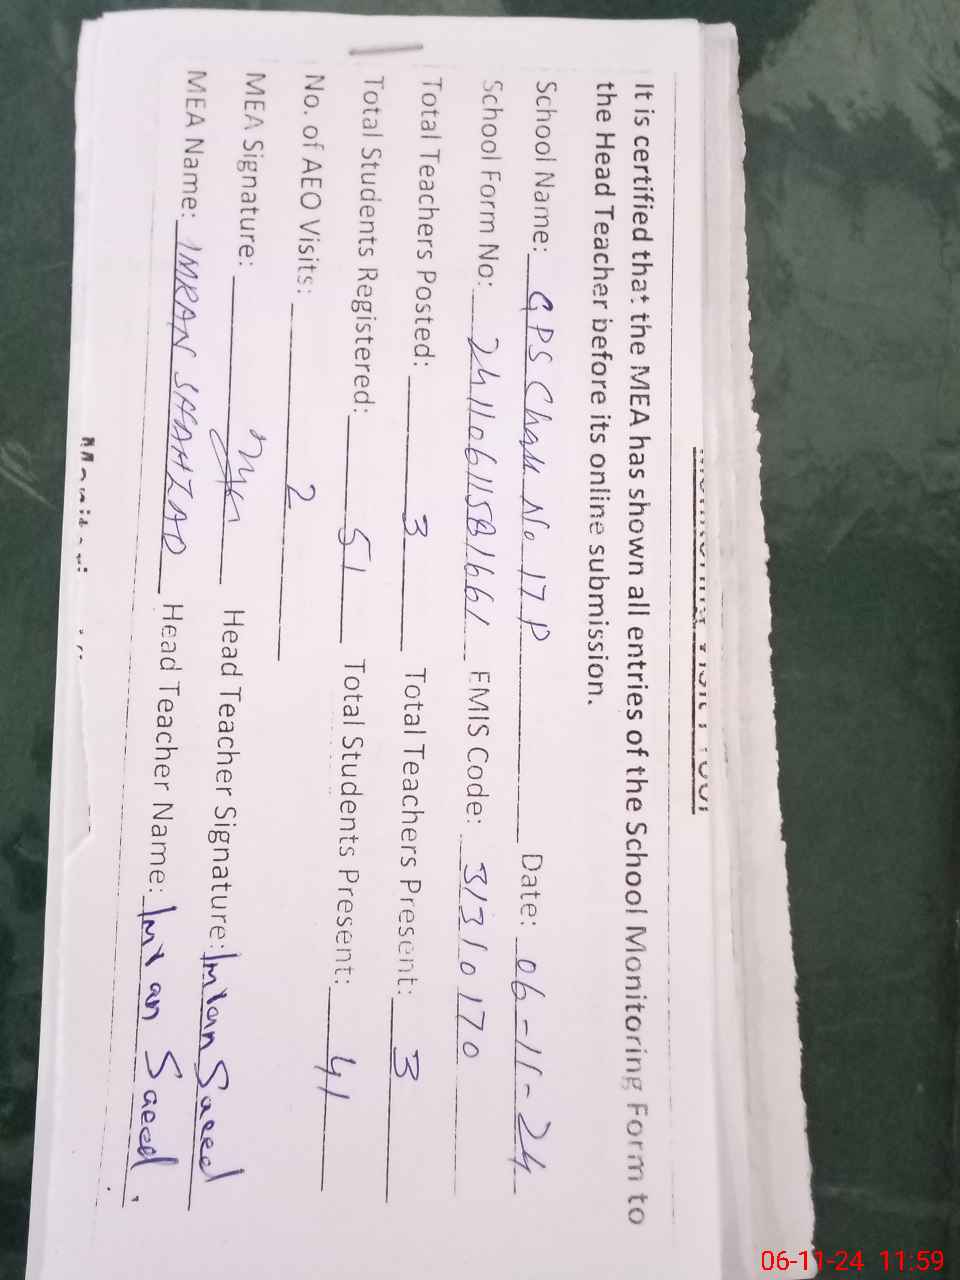 It is certified that the MEA has shown all entries of the School Monitoring Form to
the Head Teacher before its online submission.
School Name: GPS Chak No 17 P Date: 06-11-24
School Form No: EMIS Code: 31310170
Total Teachers Posted: 3 Total Teachers Present: 3
Total Students Registered: 51 Total Students Present: 41
No. of AEO Visits: 2
MEA Signature: Head Teacher Signature: Imran Saeed
MEA Name: IMRAN SHAHZAD Head Teacher Name: Imran Saeed
06-11-24 11:59